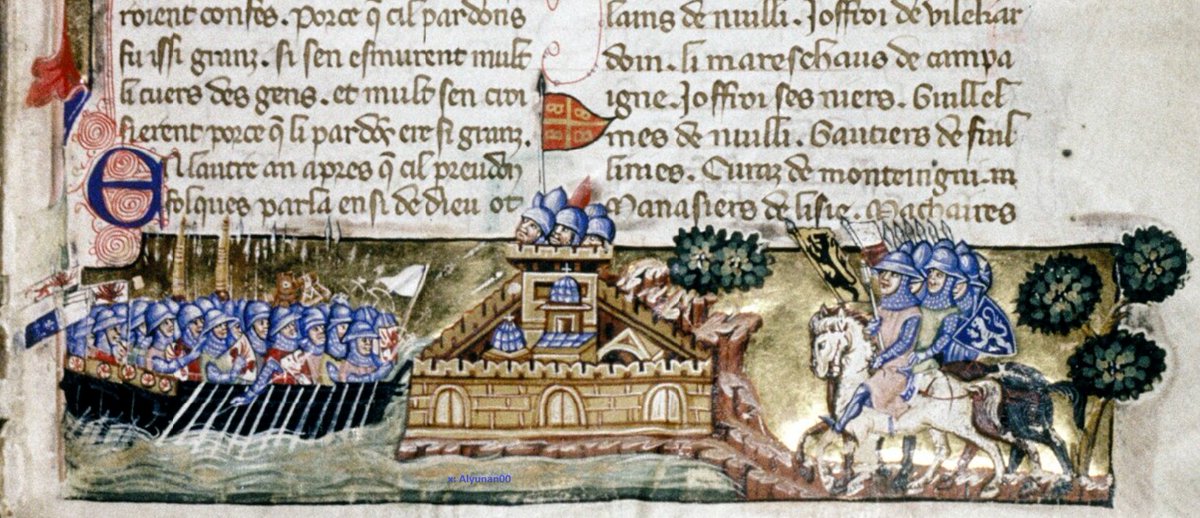 roient confes. Porce q̃ cil pardons
fu issi granz. si sen esmurent mult
li cuers des gens. et mult sen croi
sierent porce q̃ li pardõs ere si granz.
En lautre an apres q̃ cil preudõ
folques parla ensi de dieu ot
lains de nuilli. Joffroi de vilehar
doin. li mareschaus de campa
igne. Joffroi ses niers. Guillel
mes de nuilli. Gautiers de fuil
linies. Euraz de monteingni.
Manasiers de lisle. Machaires
x: Alyunan00